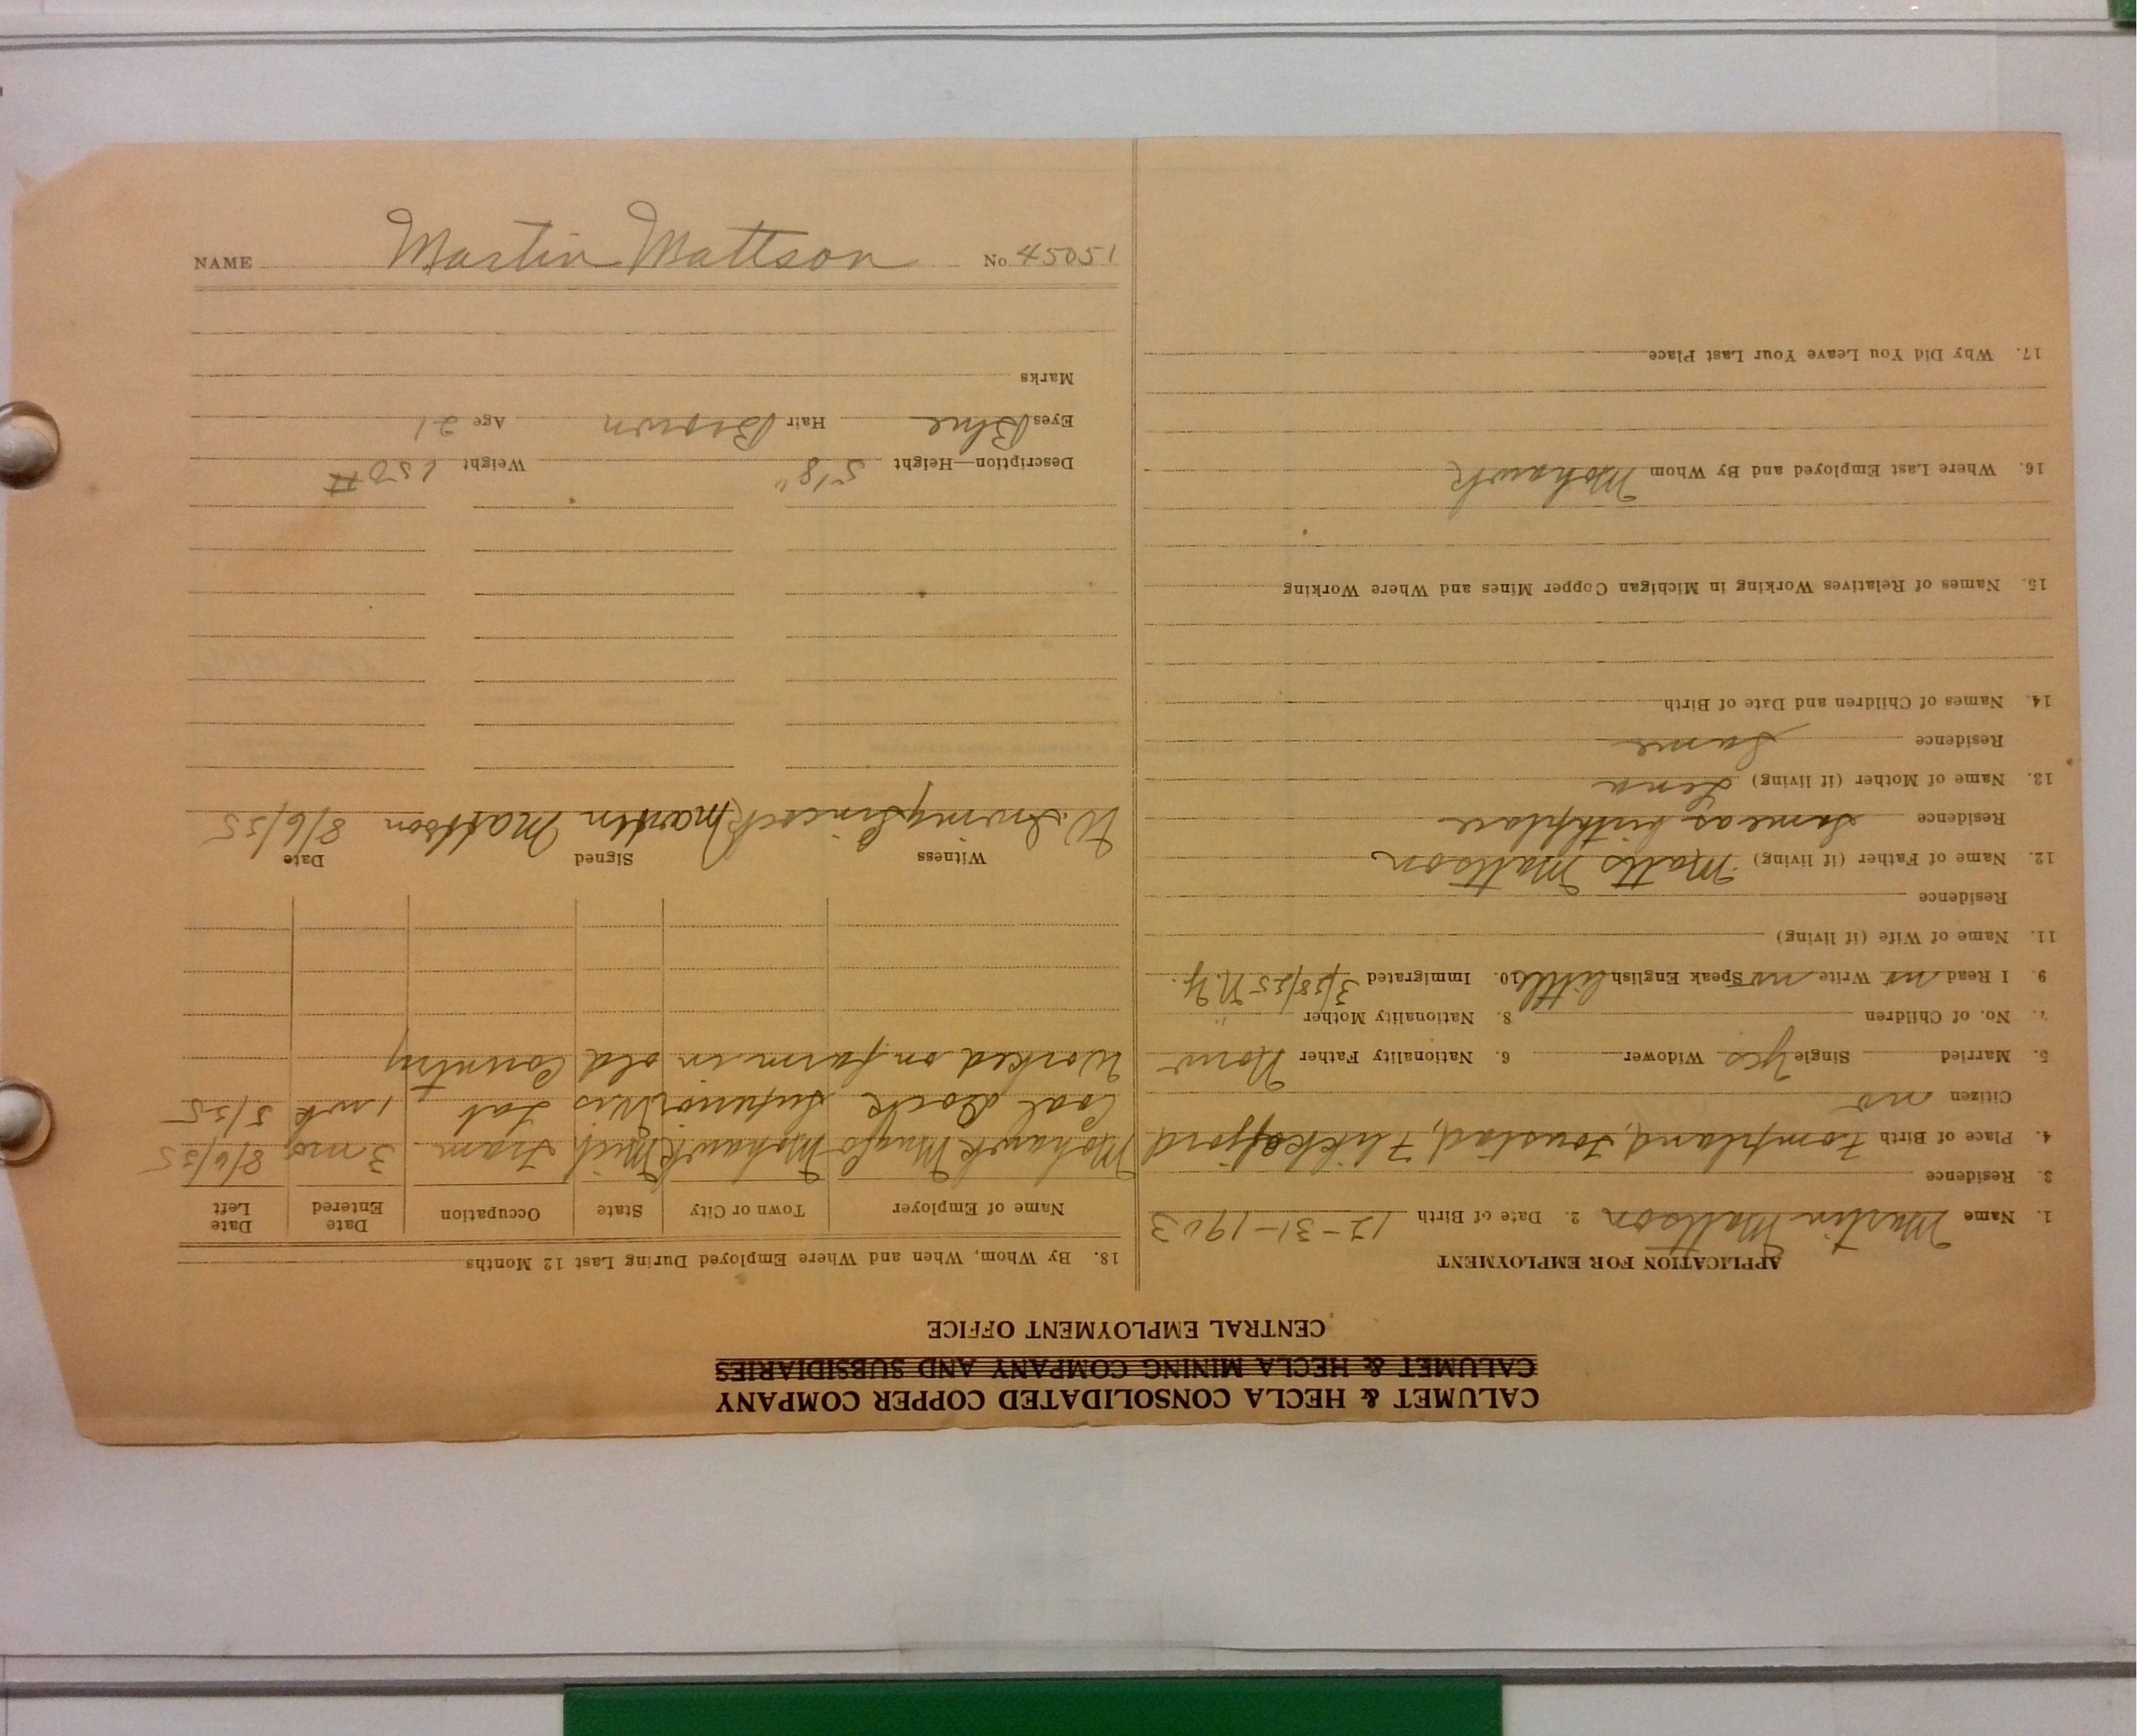 CALUMET & HECLA CONSOLIDATED COPPER COMPANY
CALUMET & HECLA MINING COMPANY AND SUBSIDIARIES
CENTRAL EMPLOYMENT OFFICE
APPLICATION FOR EMPLOYMENT
1. Name Martin Mattson 2. Date of Birth 12-31-1903
3. Residence
4. Place of Birth
Citizen no
5. Married Single Yes Widower 6. Nationality Father Norw
7. No. of Children 8. Nationality Mother "
9. I Read no Write no Speak English little 10. Immigrated 3/28/25 N.Y.
11. Name of Wife (if living)
Residence
12. Name of Father (if living) Matts Mattson
Residence Same as birthplace
13. Name of Mother (if living) Lena
Residence Same
14. Names of Children and Date of Birth
15. Names of Relatives Working in Michigan Copper Mines and Where Working
16. Where Last Employed and By Whom Mohawk
17. Why Did You Leave Your Last Place
18. By Whom, When and Where Employed During Last 12 Months
Name of Employer Town or City State Occupation Date Entered Date Left
Mohawk Mng Co Mohawk Mich Tram 3 mos 8/6/25
Coal dock Superior Wis Lab 1 wk 5/25
Worked on farm in old Country
Witness Signed Date
W. Irving Martin Mattson 8/6/25
Description—Height 5'8" Weight 150 #
Eyes Blue Hair Brown Age 21
Marks
NAME Martin Mattson No. 45051